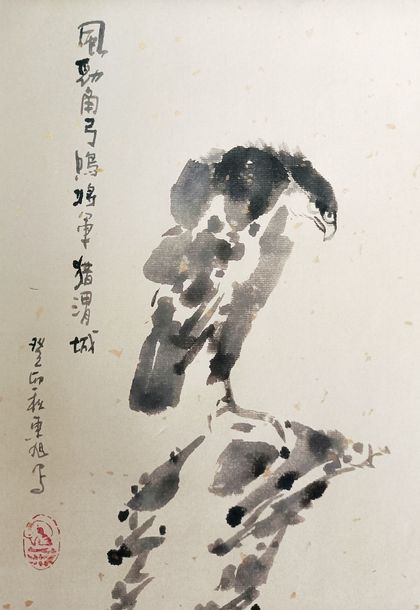 風勁角弓鳴將軍猎渭城
癸卯秋東旭写